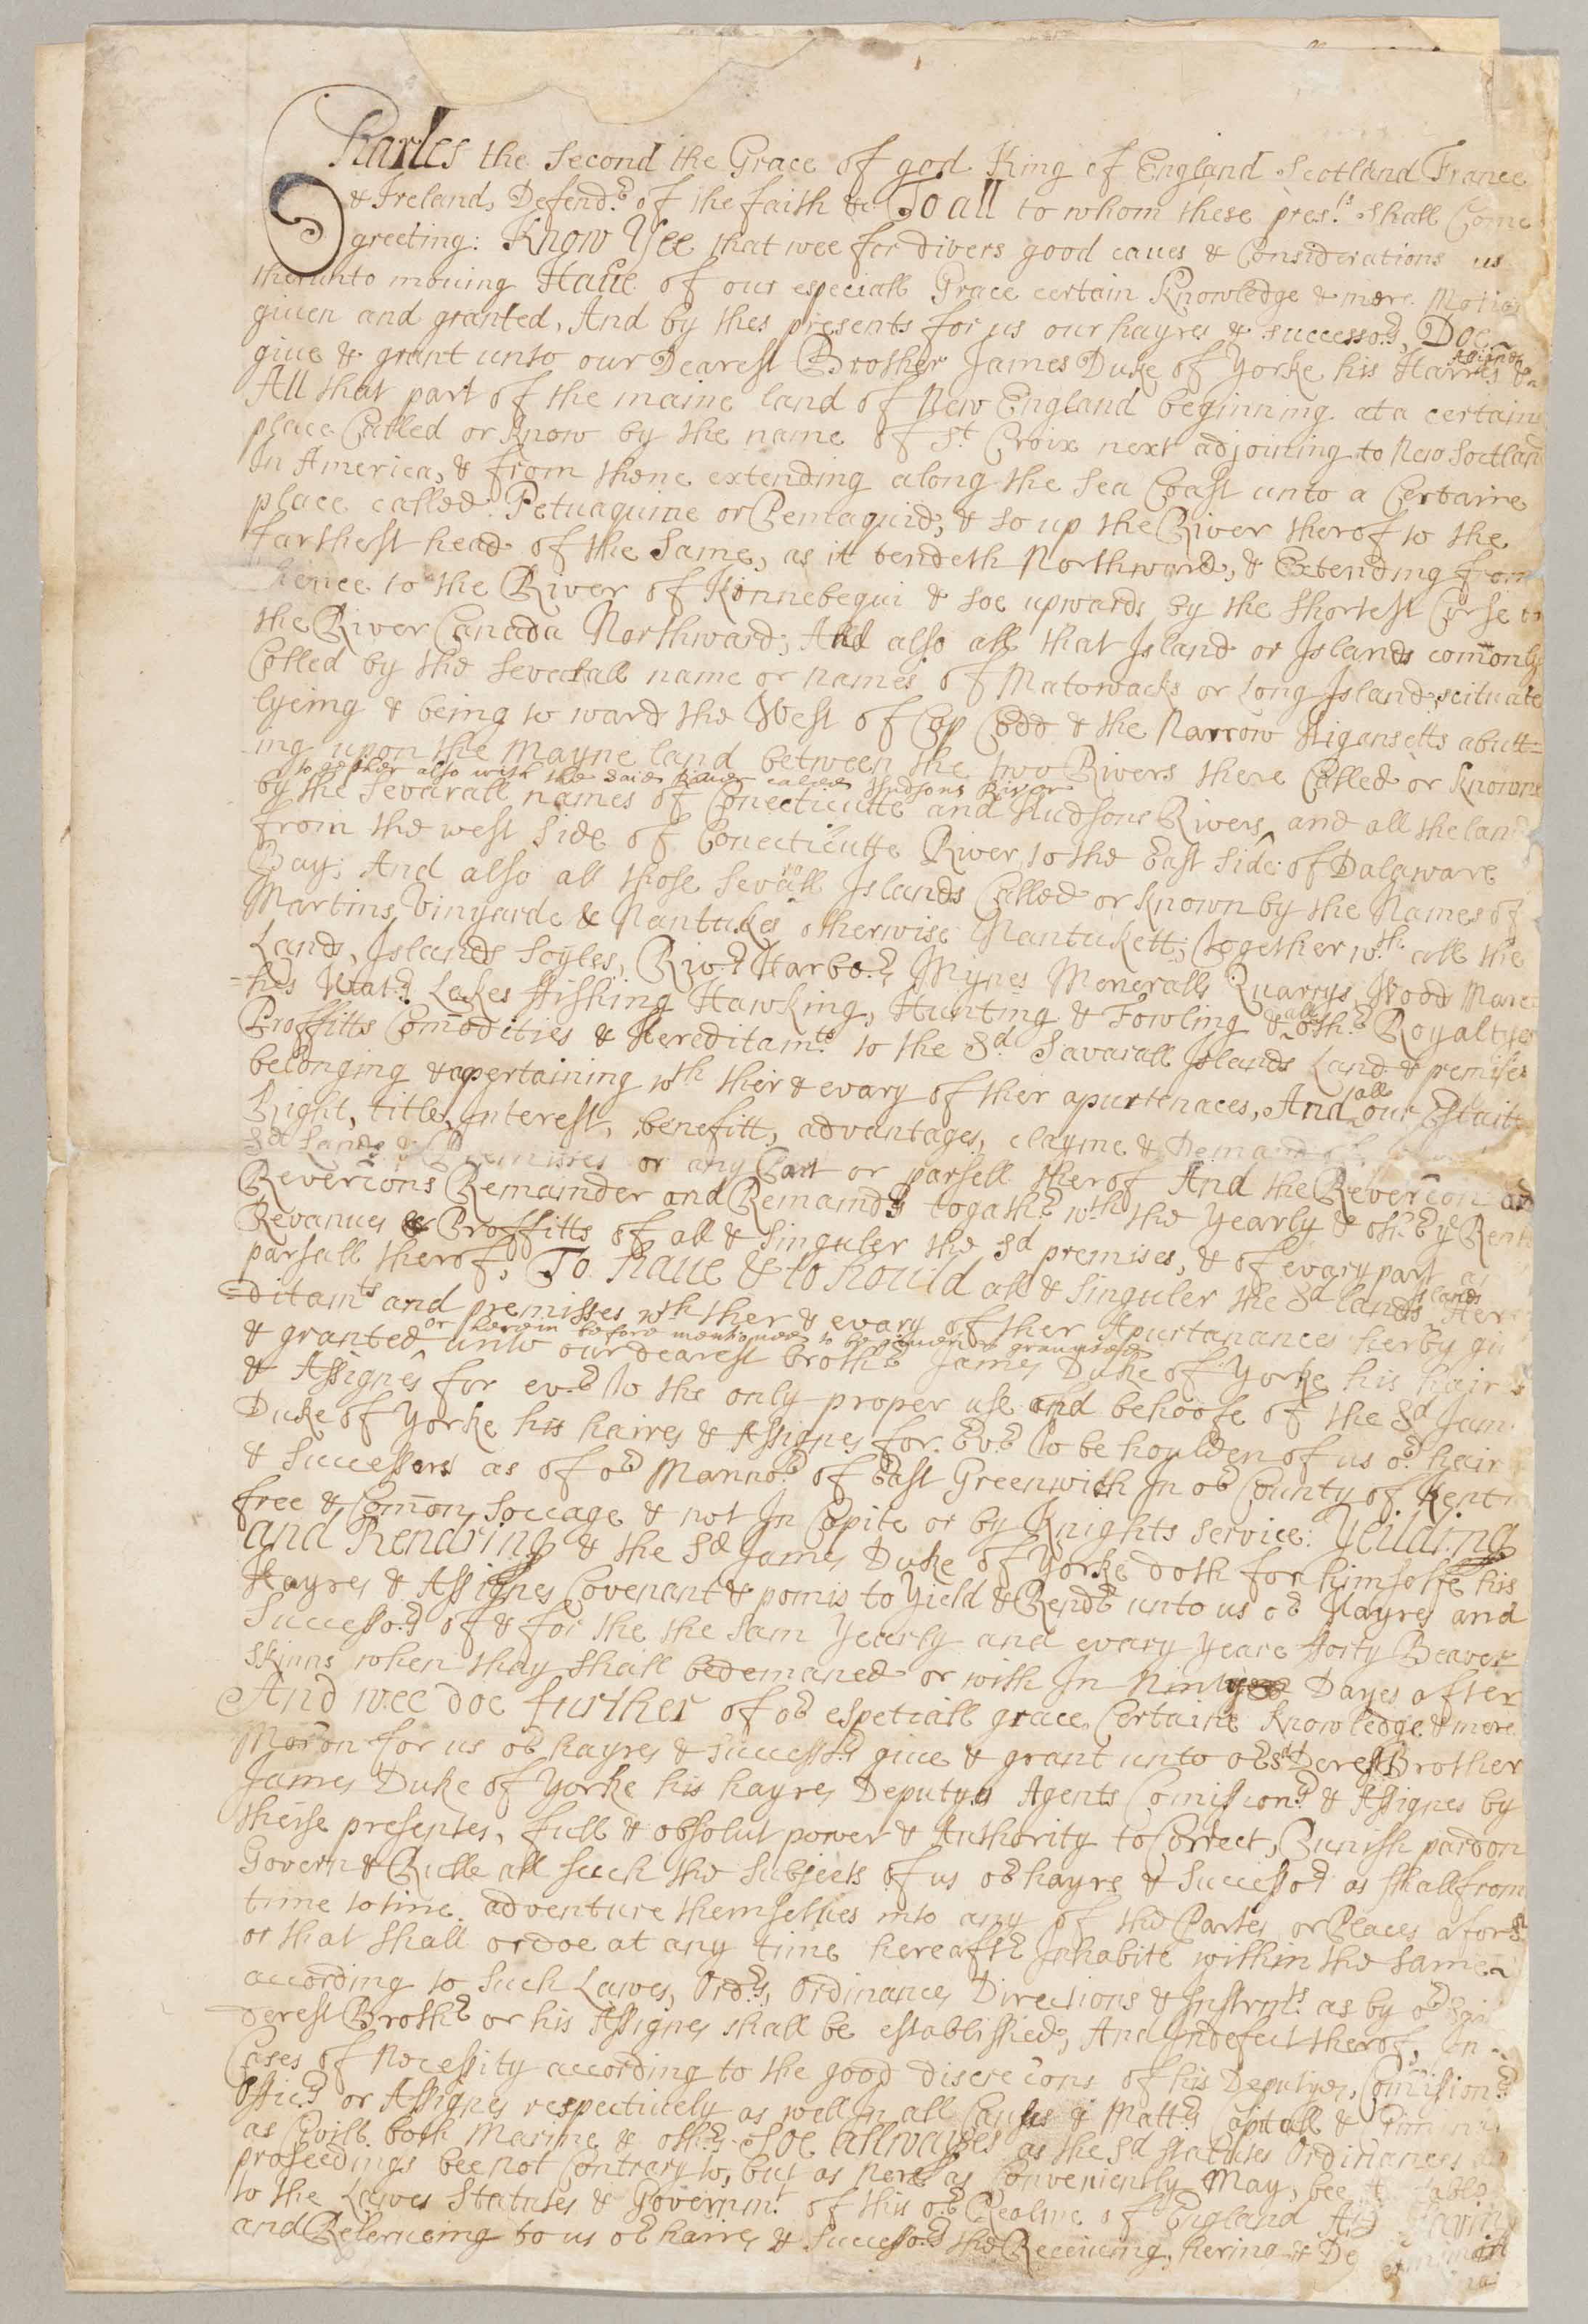 Charles the Second the Grace of god King of England Scotland France
& Ireland, Defendr of the faith &c To all to whom these prests shall Come
greeting: Know Yee that wee for divers good caues & Considerations us
therunto mouing Haue of our especiall Grace certain Knowledge & mere Motion
giuen and granted, And by thes presents for us our hayres & successors, Doe
giue & grant unto our Dearest Brother James Duke of Yorke his Haires & Assignes
All that part of the maine land of New England beginning at a certaine
place Called or know by the name of St Croix next adjoining to New Scotland
In America, & from thene extending along the Sea Coast unto a Certaine
place called Petuaquine or Pemaquid, & so up the River therof to the
farthest head of the Same, as it tendeth Northward, & Extending from
thence to the River of Kinnebequi & soe upwards by the Shortest Corse to
the River Canada Northward, And also all that Island or Islands comonly
Called by the Severall name or names of Matowacks or Long Island scituate
lyeing & being to ward the West of Cap Codd & the Narrow Higansetts abutt=
ing upon the mayne land between the two Rivers there Called or Knowne
together also with the said River called Hudsons River
by the Sevarall names of Conecticutte and Hudsons Rivers and all the land
from the west side of Conecticutte River to the East Side of Dalaware
Bay; And also all those Sevarall Islands Called or Known by the Names of
Martins Vinyarde & Nantukes otherwise Nantukett; Together wth all the
Lands, Islands Soyles, Rivrs Harbors Mynes Meneralls Quarrys Wood Mare
=hes Watrs Lakes ffishing Hawking, Hunting & Fowling & all othr Royaltyes
Proffitts Comodities & Hereditamts to the Sd Savarall Islands Land & premises
belonging & apertaining wth thier & evary of thier apurtenaces, And all our Estaite
Right, title, Interest, benefitt, advantages, clayme & Demand of
Sd Lands & premisses or any Part or parsell therof And the Revercon and
Revercons Remainder and Remaindrs togathr wth the Yearly & othr ye Rents
Revanues & Proffitts of all & Singuler the Sd premises, & of evary part
parsall therof, To haue & to hould all & Singuler the Sd lands Islands Here
=ditamts and premisses wth ther & evary of ther Apurtanances herby giu
or herein before mentioned to be giuen or graunted
& granted unto our dearest brothr James Duke of Yorke his hairs
& Assignes for evr To the only proper use and behoofe of the Sd Jam
Duke of Yorke his haires & Assignes for Evr To be houlden of us or hair
& Successers as of or Mannor of East Greenwich In or County of Kent
free & Comon Soccage & not In Capite or by Knights service: Yeilding
and Rendring & the Sd James Duke of Yorke doth for himselfe his
Hayres & Assignes Covenant & pomis to Yield & Rendr unto us or Hayres and
Successors of & for the the Sam Yearly and evary Yeare forty Beaver
Skinns when thay shall bedemaned or with In Ninty Dayes after
And wee doe further of or espetiall grace Certaine Knowledge & mere
Moron for us or hayres & Successrs giue & grant unto or Sd Derest Brother
James Duke of Yorke his hayres Deputyes Agents Comissionrs & Assignes by
theise presentes, full & absolut power & Authority to Correct, Punish pardon
Govern & Rulle all such the Subjects of us or hayrs & Successors as shall from
time to time adventure themselues into any of the Partes or Places aforsd
or that shall or doe at any time hereaftr Inhabite within the same
according to Such Lawes, Ordrs, Ordinances Directions & Instrmts as by or Said
derest Brothr or his Assignes shall be established, And Indefect therof, In
Cases of Necessity according to the good discrecons of his Deputyes, Comissionrs
Officrs or Assignes respectiuely as well In all Causes & Mattrs Capitall & Criminal
as Civill both Marine & othrs Soe allwayes as the Sd Statutes Ordinances
proseedings bee not Contrary to, but as nere as Conveniently May, bee
to the Lawes Statutes & Governmt of this or Realme of England And Saving
and Reserueing to us or haires & Successors the Receiuing, hering & De